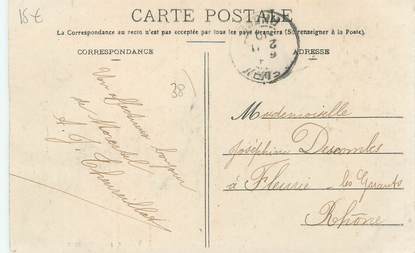 15€
CARTE POSTALE
La Correspondance au recto n'est pas acceptée par tous les pays étrangers (Se renseigner à la Poste).
CORRESPONDANCE
ADRESSE
38
Un affectueux bonjour
de
A. J.
Mademoiselle
Joséphine Descombes
à Fleurie - les Garants
Rhône